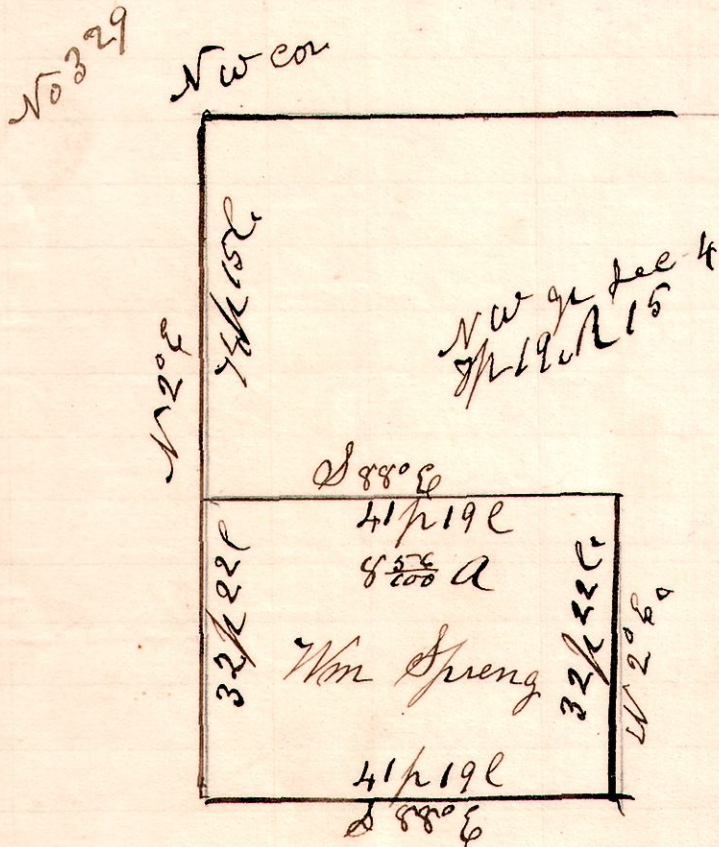 No 329
N W cor
N 2° E
15 l
N W qr Sec 4
Tp 19, R 15
S 88° E
41 p 19 l
8 56/100 A
32 p 22 l
Wm Spreng
32 p 22 l.
N 2° E.
41 p 19 l
S 88° E